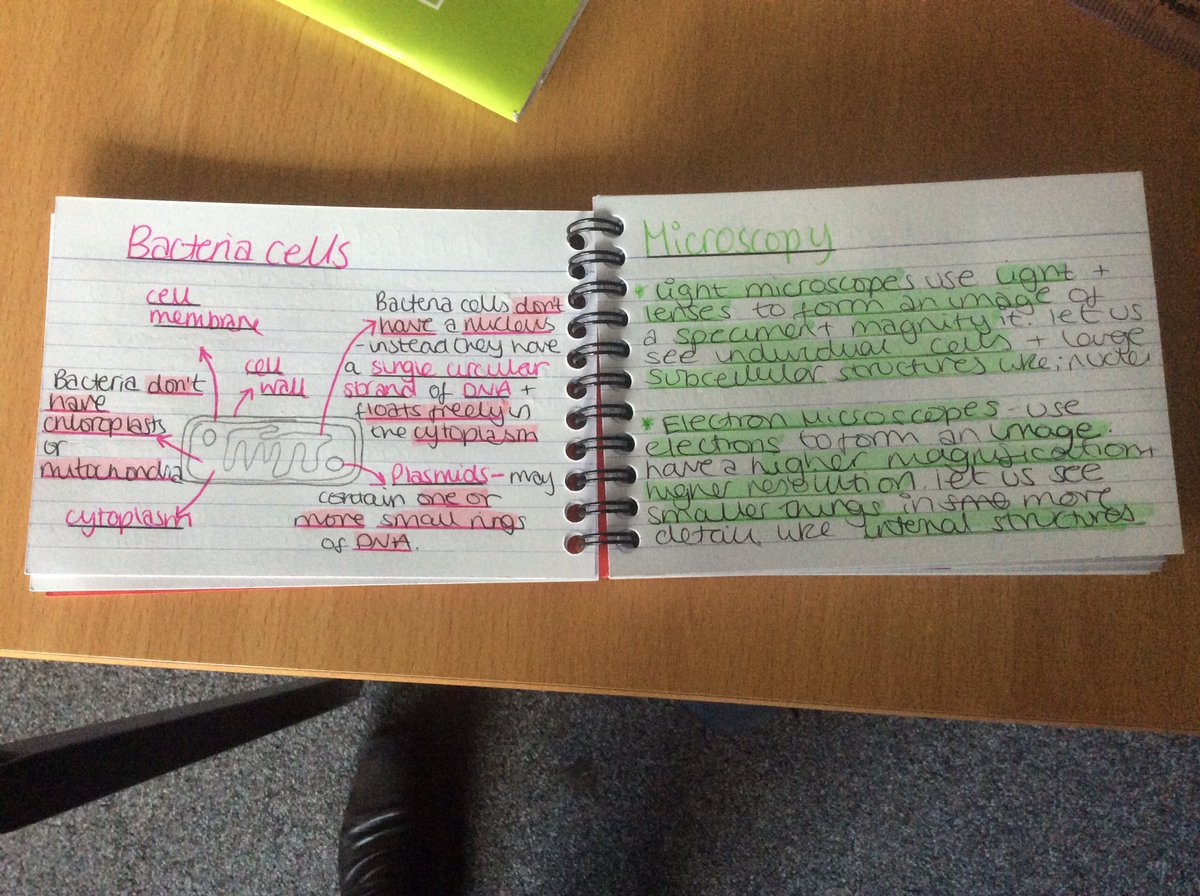 Bacteria cells
cell
membrane
cell
wall
Bacteria don't
have
chloroplasts
or
mitochondria
cytoplasm
Bacteria cells don't
have a nucleus
- instead they have
a single circular
strand of DNA +
floats freely in
the cytoplasm
Plasmids - may
contain one or
more small rings
of DNA.
Microscopy
* light microscopes use light +
lenses to form an image of
a specimen + magnify it. let us
see individual cells + large
subcellular structures like; nuclei
* Electron Microscopes - use
electrons to form an image.
have a higher magnification +
higher resolution let us see
smaller things in more
detail like internal structures